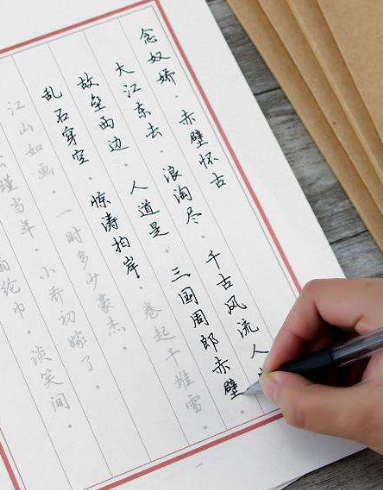 念奴娇·赤壁怀古
大江东去·浪淘尽·千古风流人
故垒西边·人道是·三国周郎赤壁·
乱石穿空·惊涛拍岸·卷起千堆雪·
江山如画·一时多少豪杰·
瑾当年·小乔初嫁了·
纶巾·谈笑间·